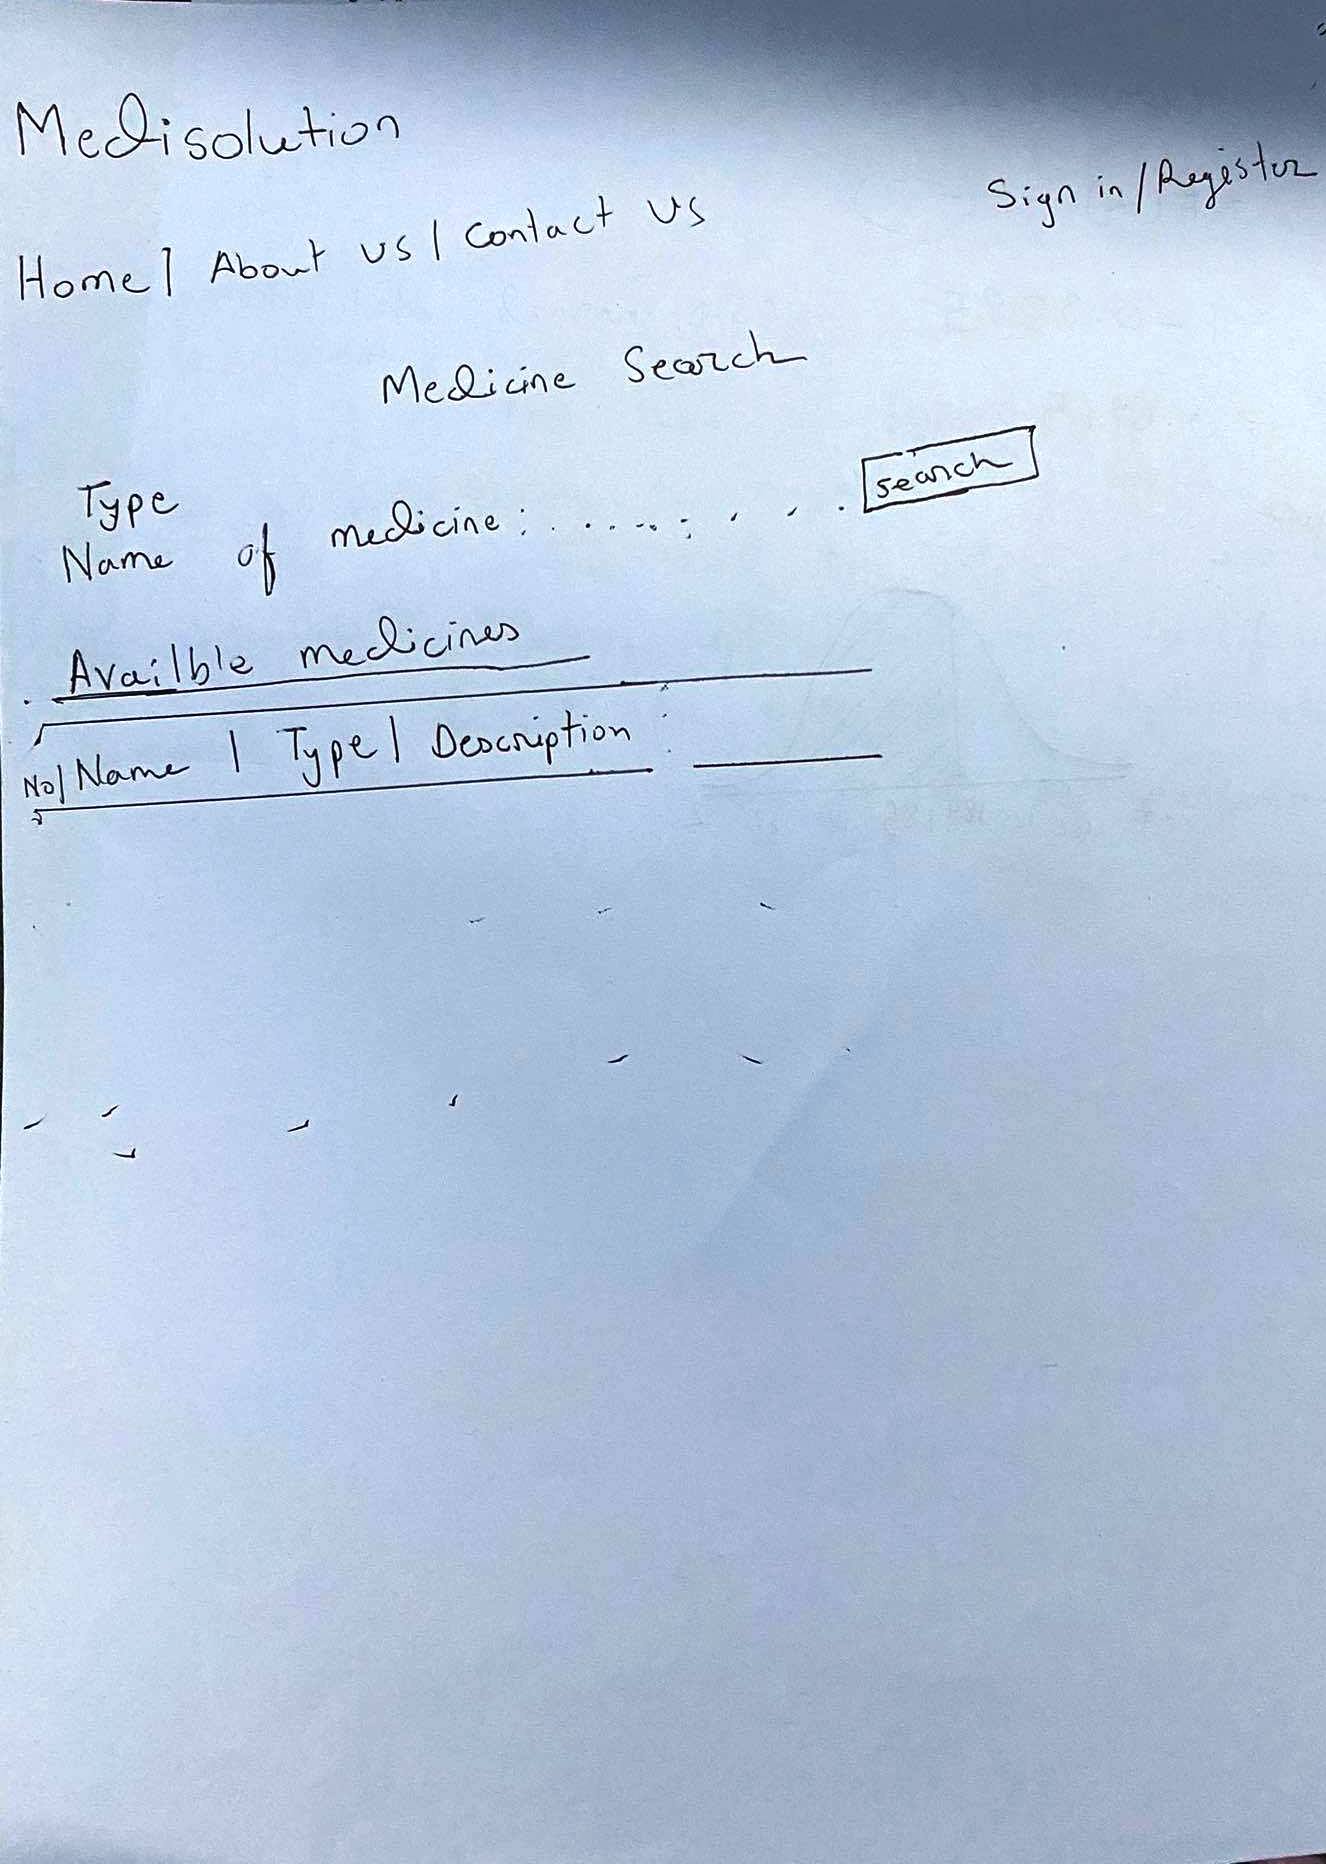 Medisolution
Sign in / Register
Home | About us | Contact us
Medicine Search
Type
Name of medicine: ........... search
Availble medicines
No | Name | Type | Description